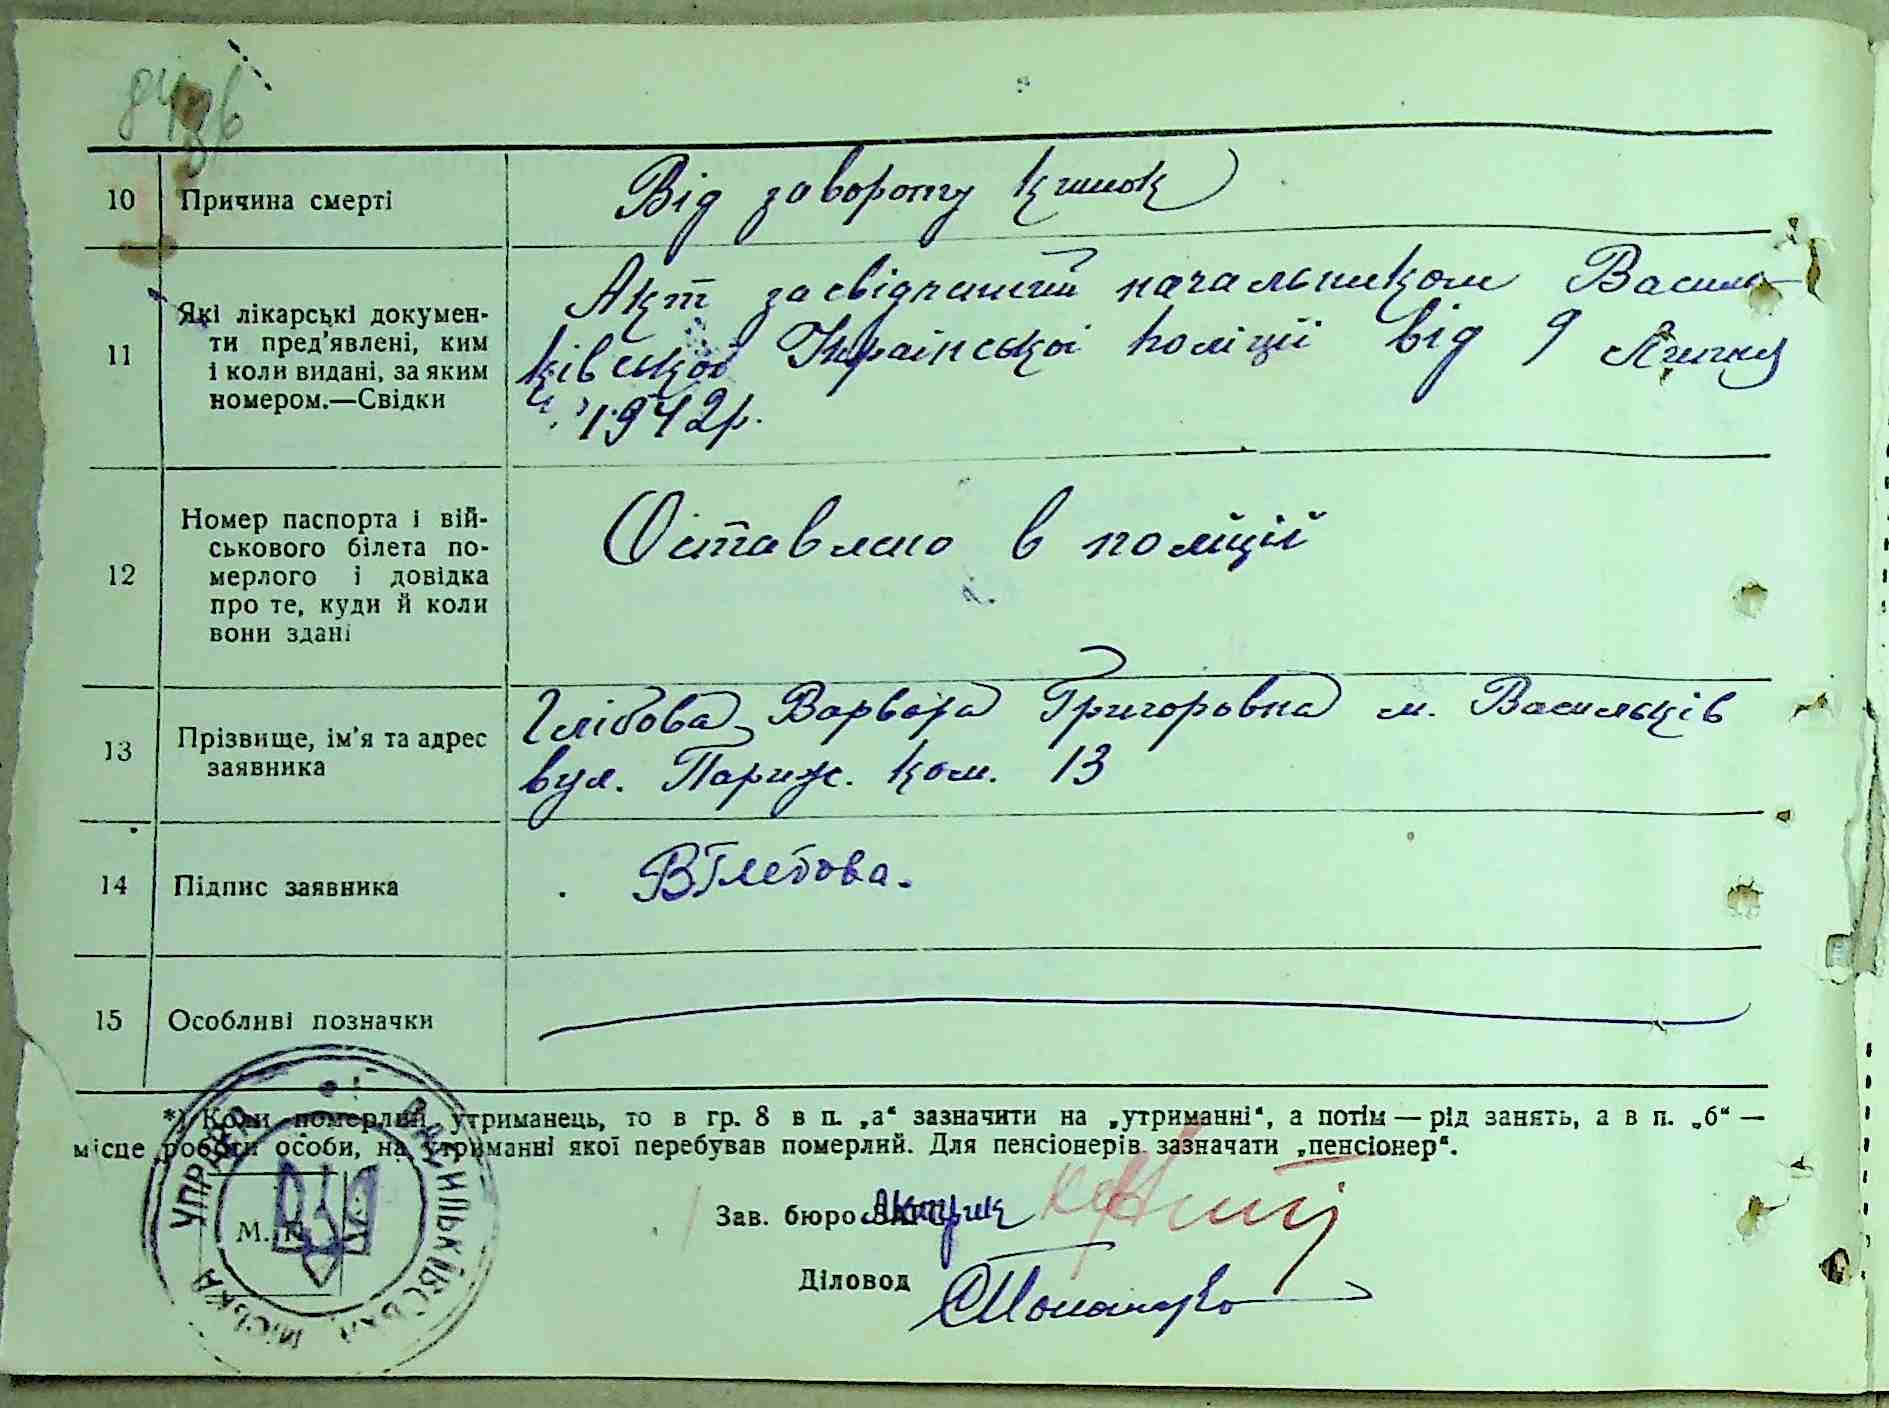 10 Причина смерті Від завороту кишок
11 Які лікарські докумен-
ти пред'явлені, ким
і коли видані, за яким
номером.—Свідки
Акт засвідчаний начальником Василь-
ківської Української поліції від 9 Липня
1942р.
12 Номер паспорта і вій-
ськового білета по-
мерлого і довідка
про те, куди й коли
вони здані
Оставлено в поліції
13 Прізвище, ім'я та адрес
заявника
Глібова Варвара Григоровна м. Васильків
вул. Париж. ком. 13
14 Підпис заявника ВГлебова.
15 Особливі позначки
*) Коли померлий утриманець, то в гр. 8 в п. „а“ зазначити на „утриманні“, а потім — рід занять, а в п. „б“ —
місце роботи особи, на утриманні якої перебував померлий. Для пенсіонерів зазначати „пенсіонер“.
ВАСИЛЬКІВСЬКА МІСЬКА УПРАВА
М. П.
Зав. бюро
Діловод